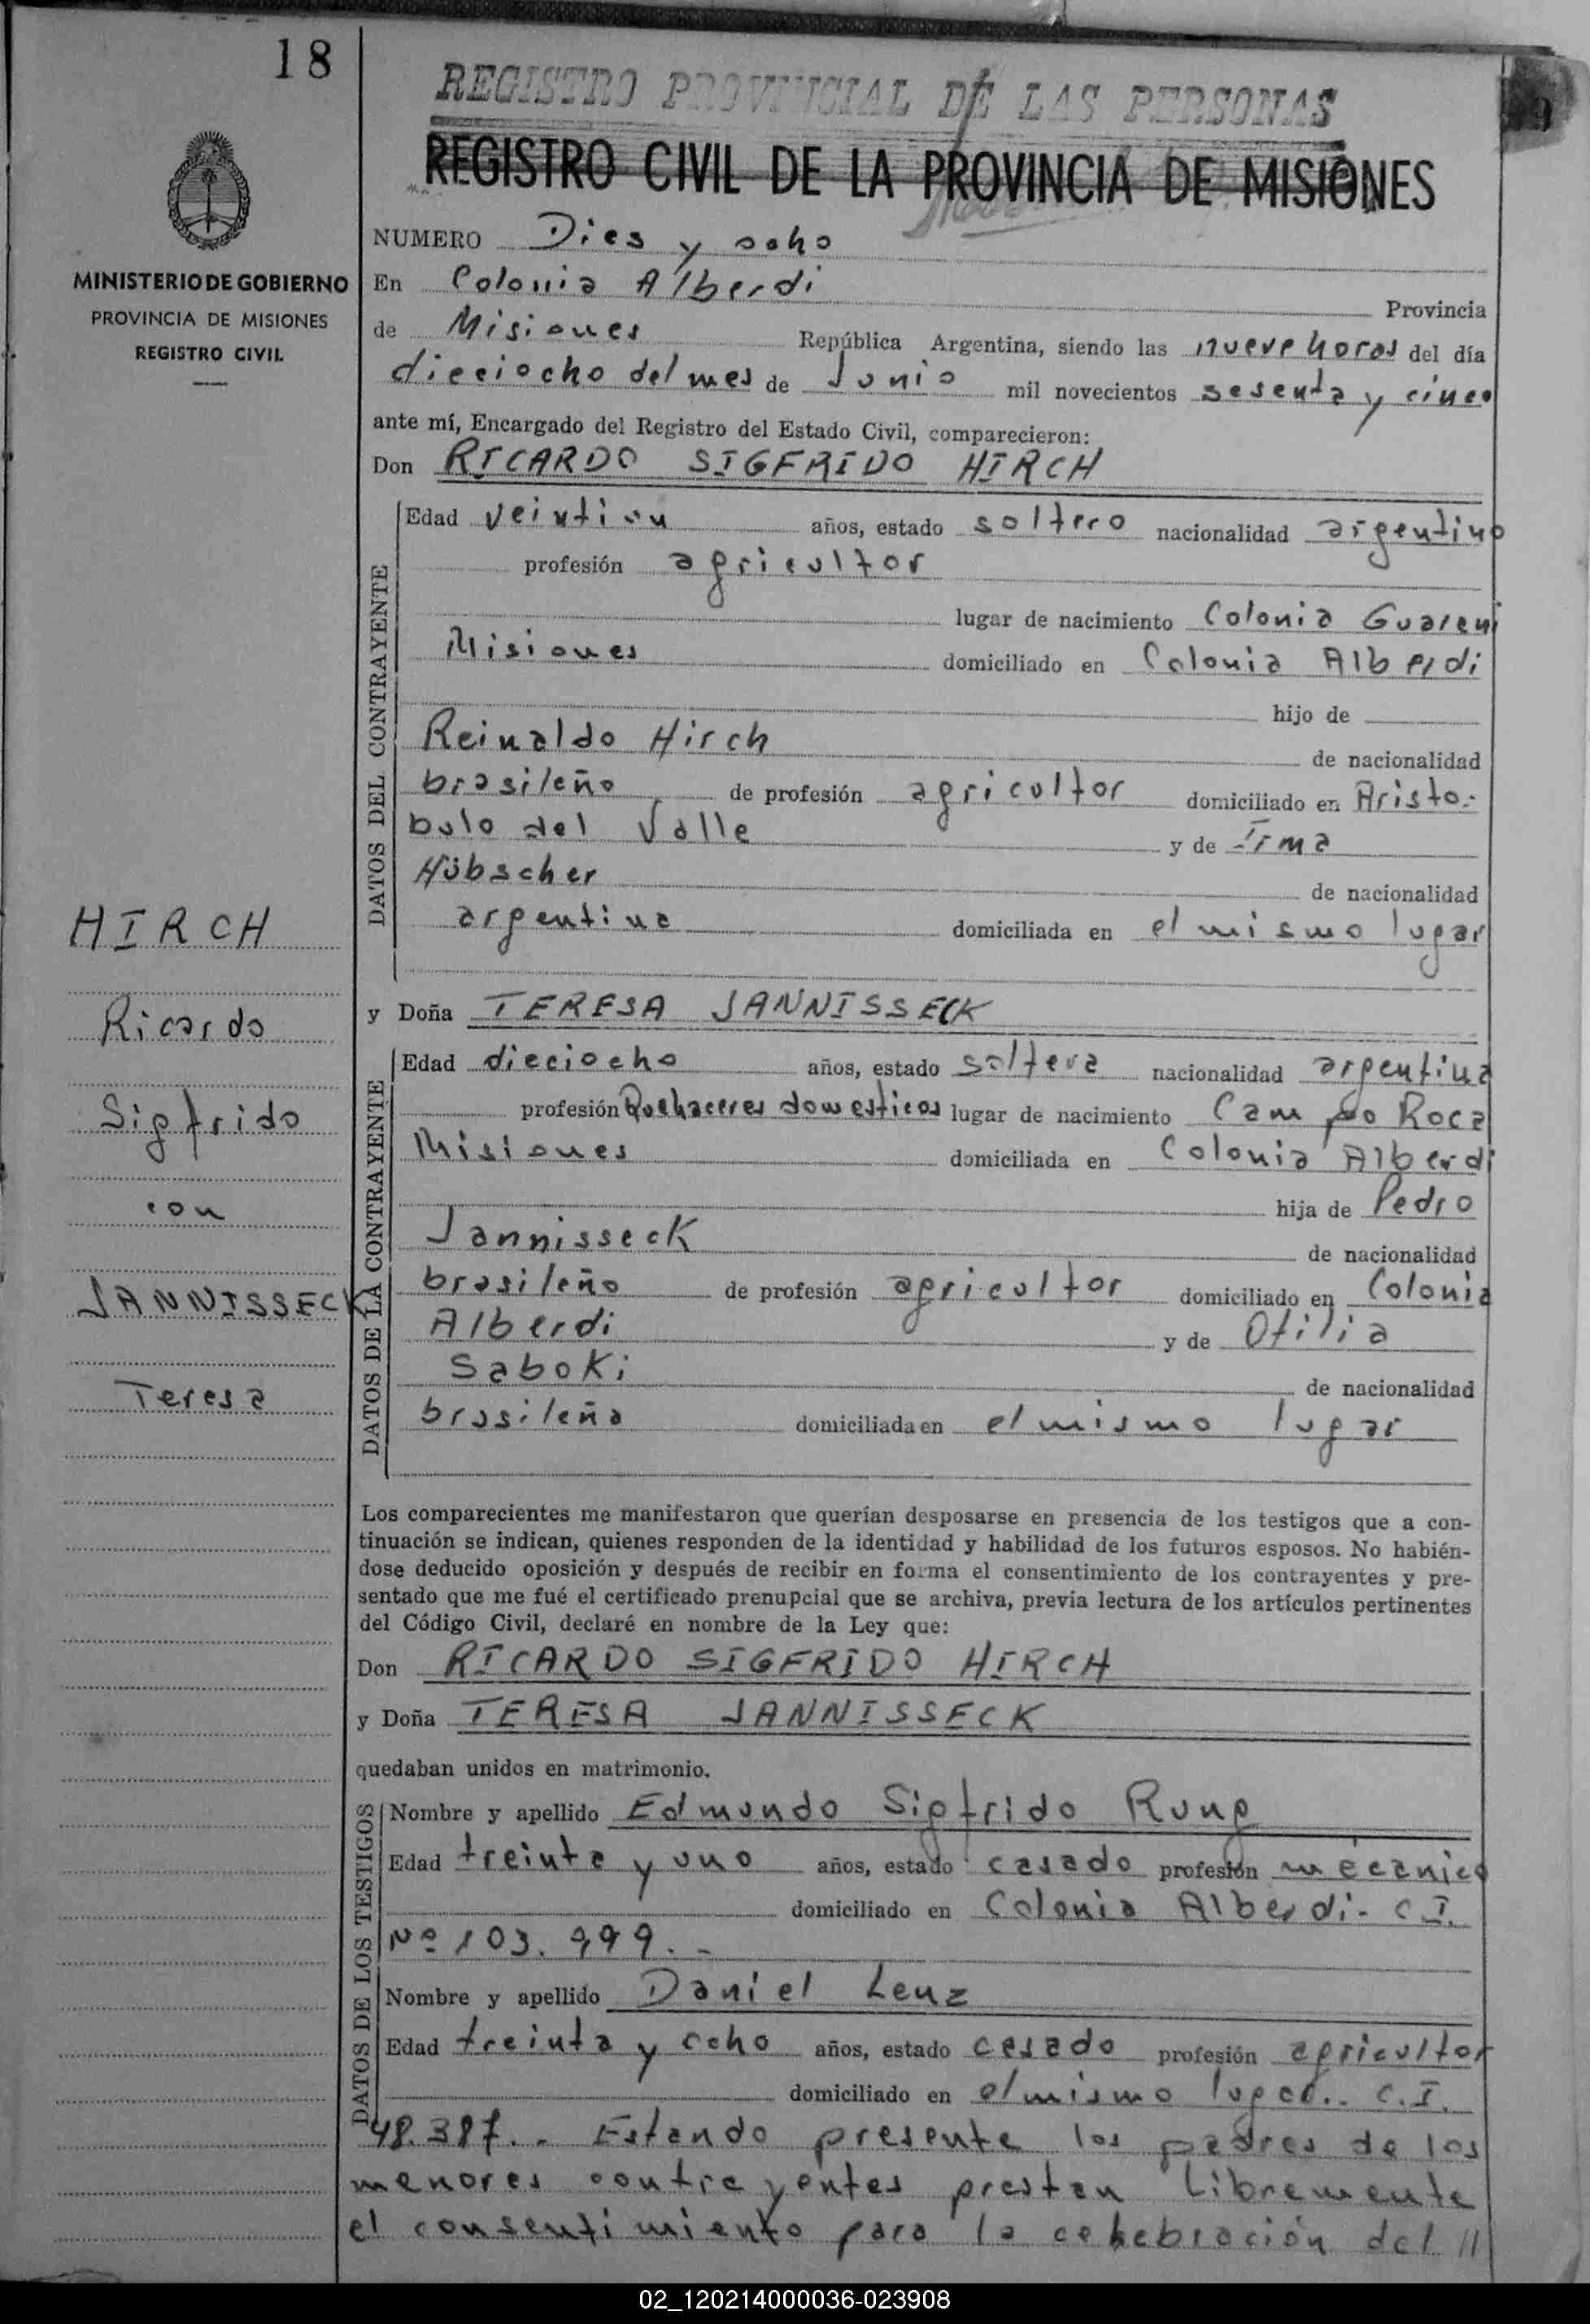 18
REGISTRO PROVINCIAL DE LAS PERSONAS
REGISTRO CIVIL DE LA PROVINCIA DE MISIONES
MINISTERIO DE GOBIERNO
PROVINCIA DE MISIONES
REGISTRO CIVIL
HIRCH
Ricardo
Sigfrido
con
JANNISSECK
Teresa
NUMERO Dies y ocho
En Colonia Alberdi Provincia
de Misiones República Argentina, siendo las nueve horas del día
dieciocho del mes de Junio mil novecientos sesenta y cinco
ante mí, Encargado del Registro del Estado Civil, comparecieron:
Don RICARDO SIGFRIDO HIRCH
DATOS DEL CONTRAYENTE
Edad veintiun años, estado soltero nacionalidad argentino
profesión agricultor
lugar de nacimiento Colonia Guareni
Misiones domiciliado en Colonia Alberdi
hijo de
Reinaldo Hirch de nacionalidad
brasileño de profesión agricultor domiciliado en Aristo-
bulo del Valle y de Irma
Hübscher de nacionalidad
argentina domiciliada en el mismo lugar
y Doña TERESA JANNISSECK
DATOS DE LA CONTRAYENTE
Edad dieciocho años, estado soltera nacionalidad argentina
profesión Quehaceres domesticos lugar de nacimiento Campo Roca
Misiones domiciliada en Colonia Alberdi
hija de Pedro
Jannisseck de nacionalidad
brasileño de profesión agricultor domiciliado en Colonia
Alberdi y de Otilia
Saboki de nacionalidad
brasileña domiciliada en el mismo lugar
Los comparecientes me manifestaron que querían desposarse en presencia de los testigos que a con-
tinuación se indican, quienes responden de la identidad y habilidad de los futuros esposos. No habién-
dose deducido oposición y después de recibir en forma el consentimiento de los contrayentes y pre-
sentado que me fué el certificado prenupcial que se archiva, previa lectura de los artículos pertinentes
del Código Civil, declaré en nombre de la Ley que:
Don RICARDO SIGFRIDO HIRCH
y Doña TERESA JANNISSECK
quedaban unidos en matrimonio.
DATOS DE LOS TESTIGOS
Nombre y apellido Edmundo Sigfrido Rung
Edad treinta y uno años, estado casado profesión mecánico
domiciliado en Colonia Alberdi- C.I.
Nº 103.999.-
Nombre y apellido Daniel Lenz
Edad treinta y ocho años, estado casado profesión agricultor
domiciliado en el mismo lugar.. C.I.
48.387.- Estando presente los padres de los
menores contrayentes prestan libremente
el consentimiento para la cehebración del //
02_120214000036-023908